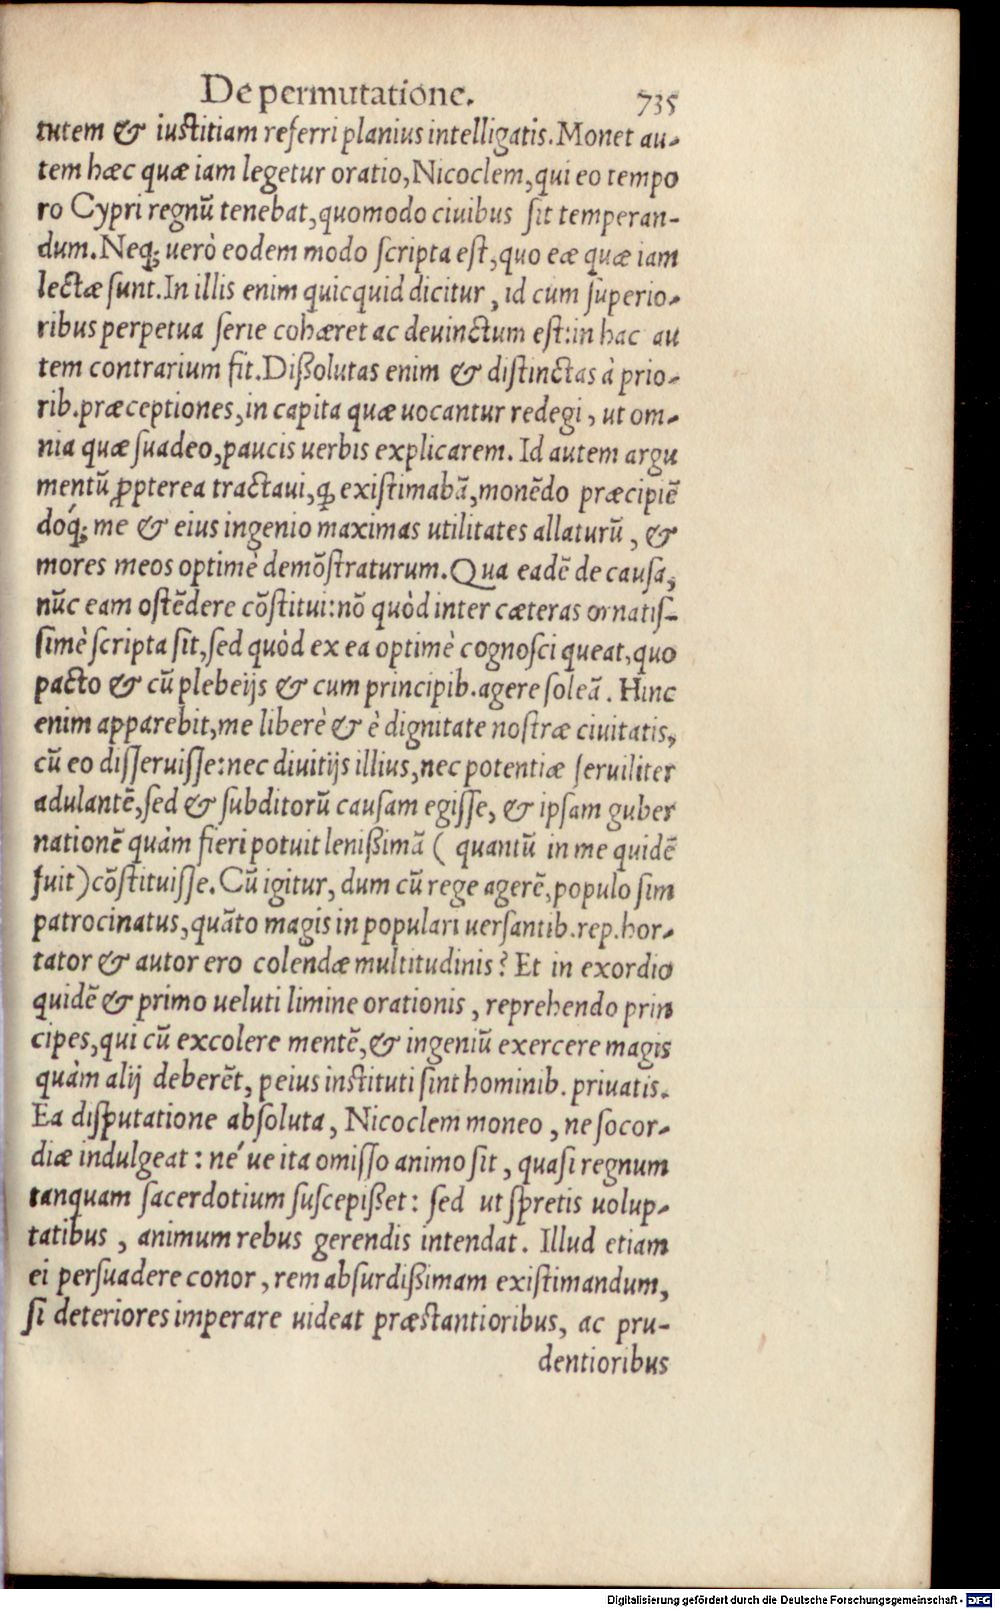 De permutatione. 735
tutem & iustitiam referri planius intelligatis. Monet au-
tem hæc quæ iam legetur oratio, Nicoclem, qui eo tempo
re Cypri regnũ tenebat, quomodo ciuibus sit temperan-
dum. Neq; uerò eodem modo scripta est, quo eæ quæ iam
lectæ sunt. In illis enim quicquid dicitur, id cum superio-
ribus perpetua serie cohæret ac deuinctum est: in hac au
tem contrarium fit. Dißolutas enim & distinctas à prio-
rib. præceptiones, in capita quæ uocantur redegi, ut om-
nia quæ suadeo, paucis uerbis explicarem. Id autem argu
mentũ ꝓpterea tractaui, ꝙ existimabã, monẽdo præcipiẽ
doq́; me & eius ingenio maximas utilitates allaturũ, &
mores meos optimè demõstraturum. Qua eadẽ de causa,
nũc eam ostẽdere cõstitui: nõ quòd inter cæteras ornatis-
simè scripta sit, sed quòd ex ea optimè cognosci queat, quo
pacto & cũ plebeijs & cum principib. agere soleã. Hinc
enim apparebit, me liberè & è dignitate nostræ ciuitatis,
cũ eo disseruisse: nec diuitijs illius, nec potentiæ seruiliter
adulantẽ, sed & subditorũ causam egisse, & ipsam guber
nationẽ quàm fieri potuit lenißimã ( quantũ in me quidẽ
fuit ) cõstituisse. Cũ igitur, dum cũ rege agerẽ, populo sim
patrocinatus, quãto magis in populari uersantib. rep. hor-
tator & autor ero colendæ multitudinis? Et in exordio
quidẽ & primo ueluti limine orationis, reprehendo prin
cipes, qui cũ excolere mentẽ, & ingeniũ exercere magis
quàm alij deberẽt, peius instituti sint hominib. priuatis.
Ea disputatione absoluta, Nicoclem moneo, ne socor-
diæ indulgeat: né ue ita omisso animo sit, quasi regnum
tanquam sacerdotium suscepißet: sed ut spretis uolup-
tatibus, animum rebus gerendis intendat. Illud etiam
ei persuadere conor, rem absurdißimam existimandum,
si deteriores imperare uideat præstantioribus, ac pru-
dentioribus
Digitalisierung gefördert durch die Deutsche Forschungsgemeinschaft - DFG